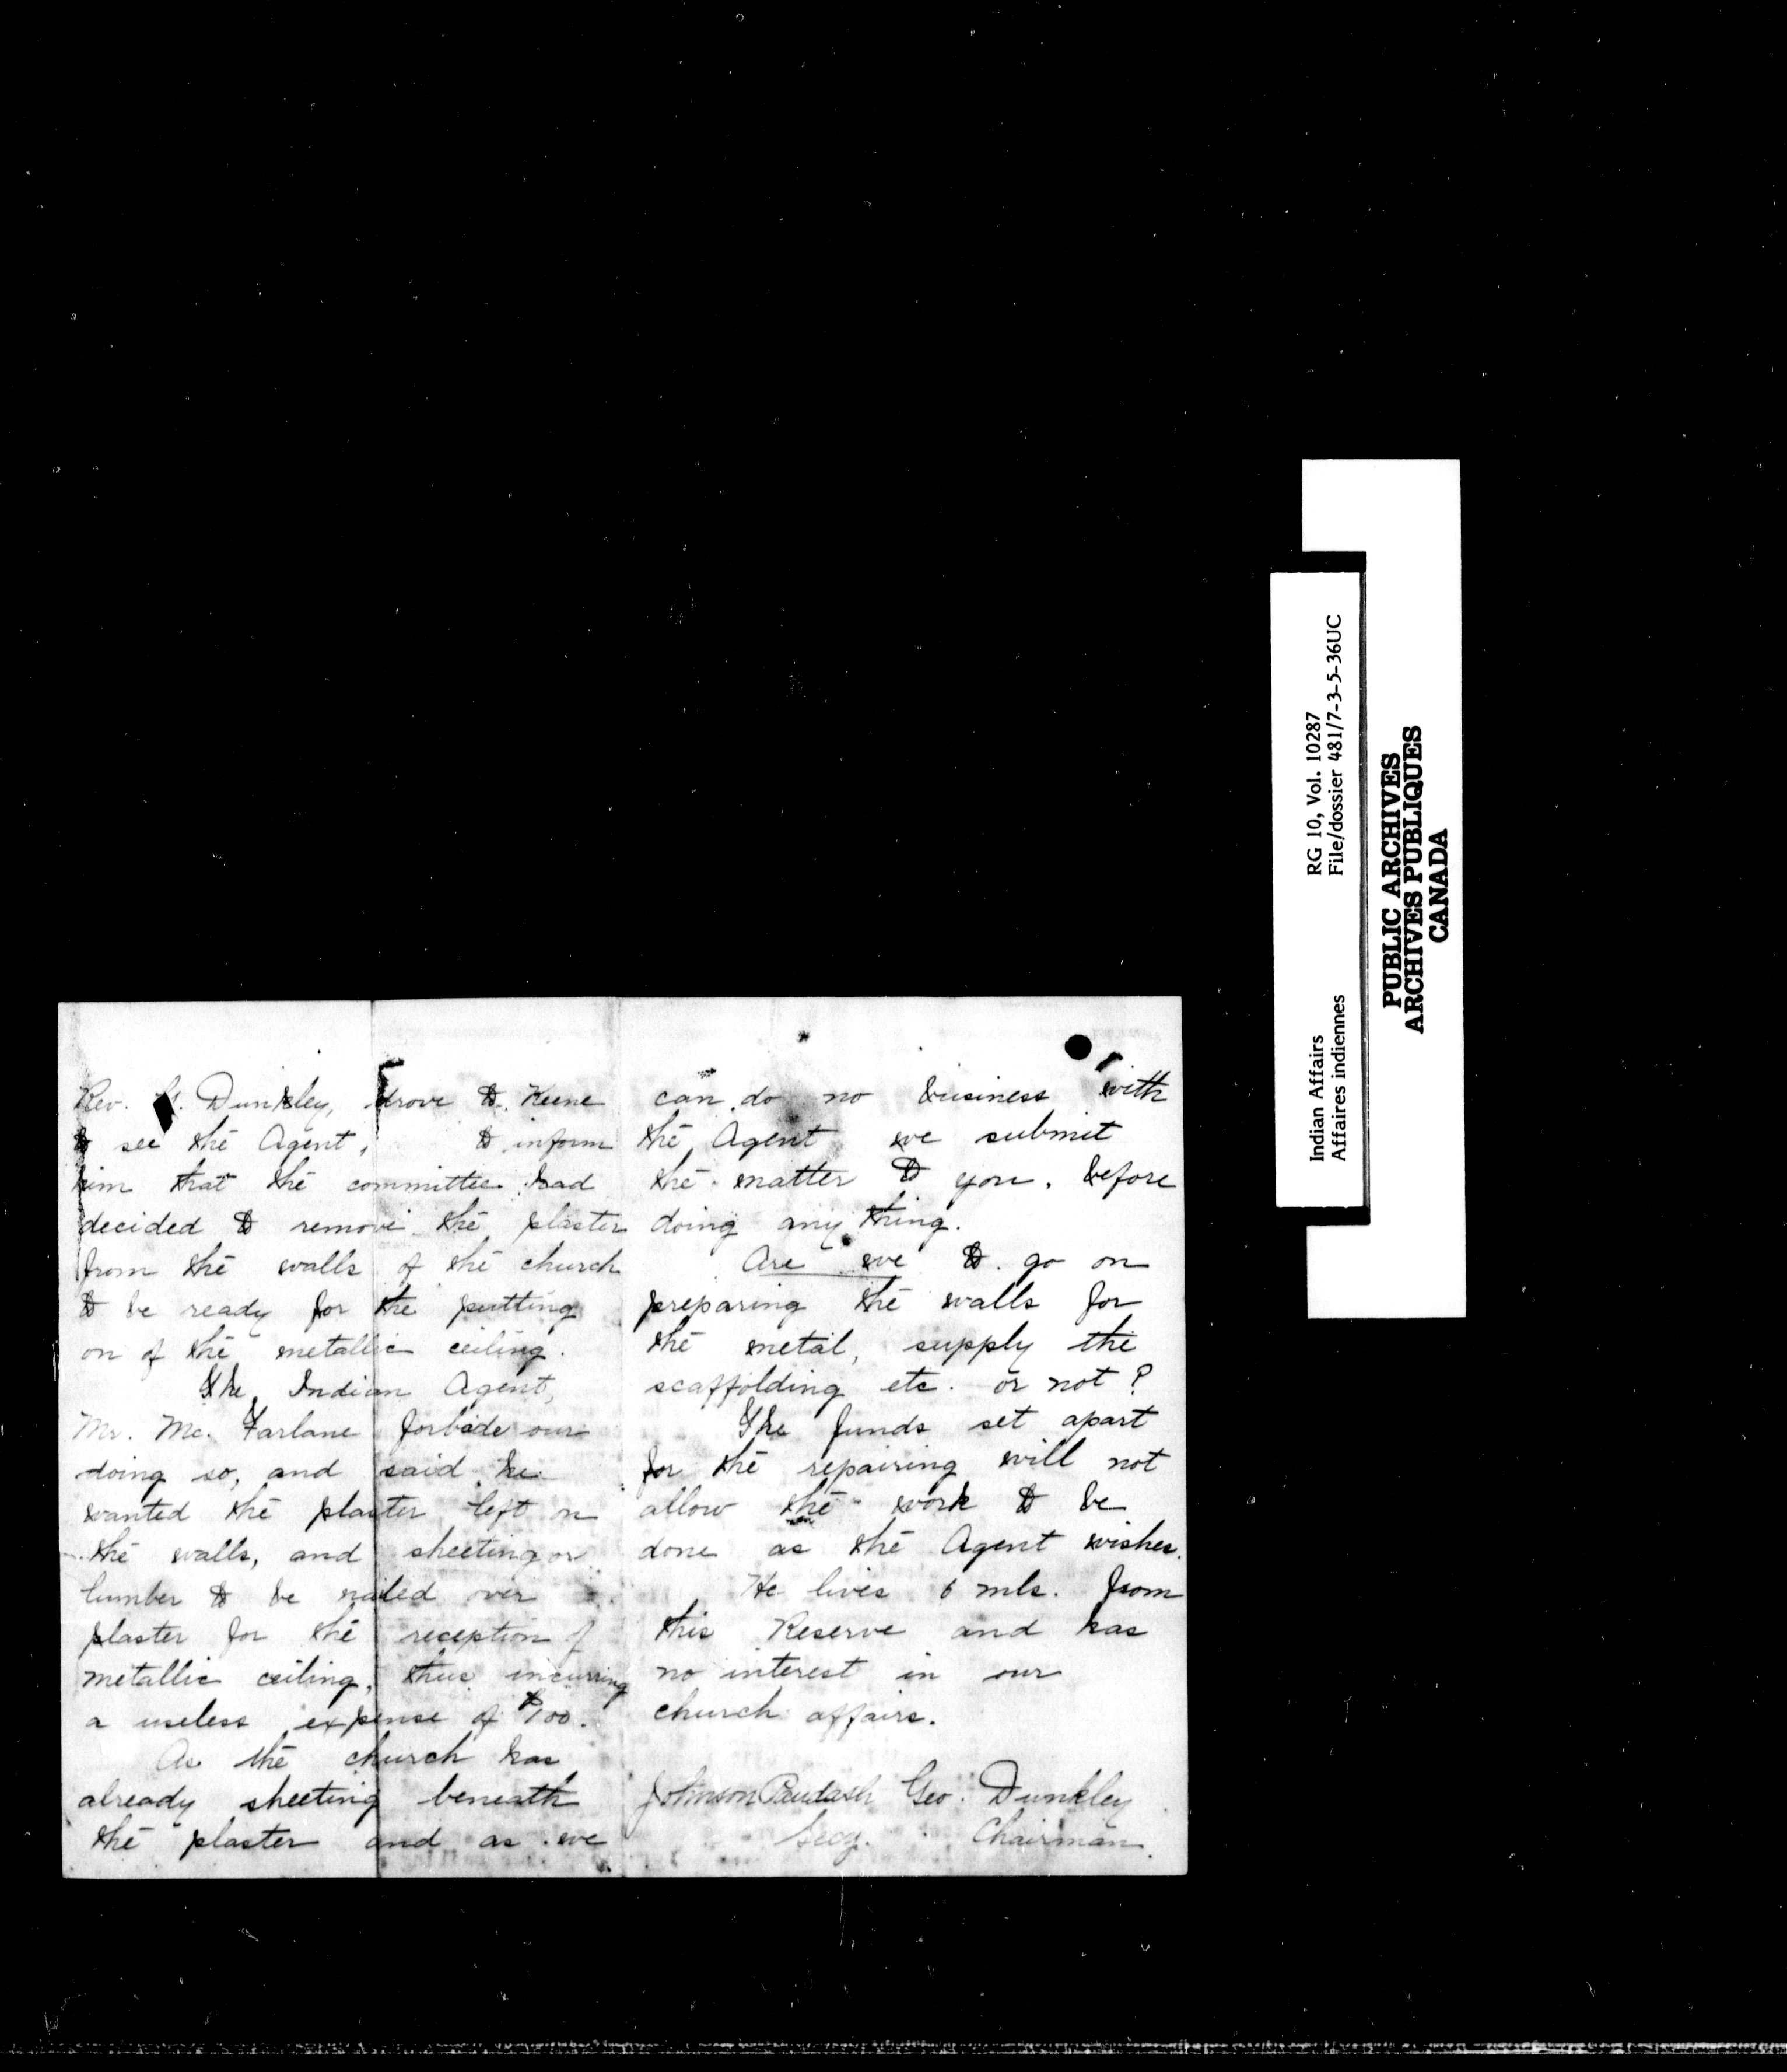 Rev. G. Dunkley, drove to Keene
to see the Agent, to inform
him that the committee had
decided to remove the plaster
from the walls of the church
to be ready for the putting
on of the metallic ceiling.
The Indian Agent,
Mr. Mc. Farlane forbade our
doing so, and said he
wanted the plaster left on
the walls, and sheeting or
lumber to be nailed over
plaster for the reception of
metallic ceiling, thus incurring
a useless expense of $100.
As the church has
already sheeting beneath
the plaster and as we
can do no business with
the Agent we submit
the matter to you, before
doing any thing.
Are we to go on
preparing the walls for
the metal, supply the
scaffolding etc. or not?
The funds set apart
for the repairing will not
allow the work to be
done as the Agent wishes.
He lives 6 mls. from
this Reserve and has
no interest in our
church affairs.
Johnson Paudash Geo. Dunkley
Secy. Chairman.
Indian Affairs RG 10, Vol. 10287
Affaires indiennes File/dossier 481/7-3-5-36UC
PUBLIC ARCHIVES
ARCHIVES PUBLIQUES
CANADA